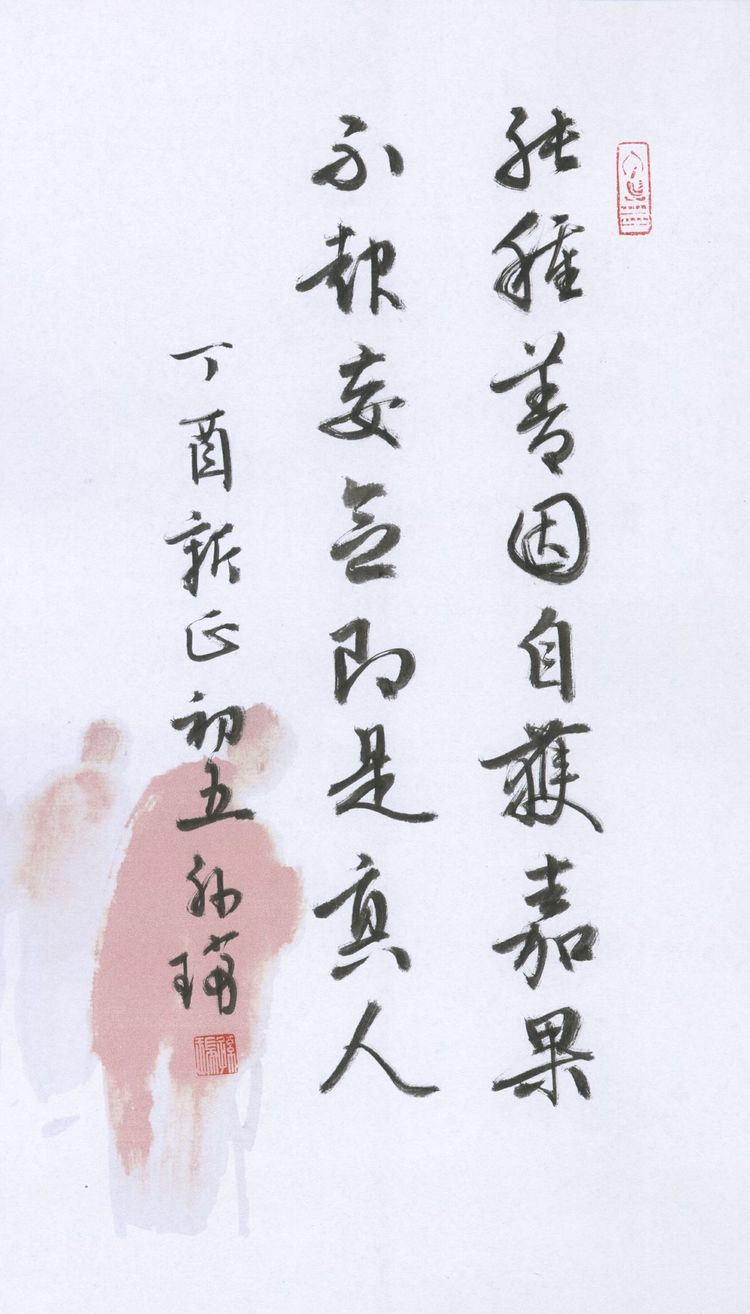 能種善因自獲嘉果
不起妄念即是真人
丁酉新正初五孙璘